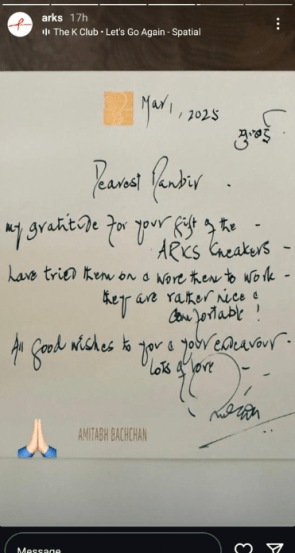 arks 17h
The K Club • Let's Go Again - Spatial
Mar 1, 2025
Dearest Ranbir -
my gratitude for your gift of the -
ARKS Sneakers -
have tried them on & wore them to work -
they are rather nice &
comfortable !
All good wishes to you & your endeavour -
Lots of love
AMITABH BACHCHAN
Message